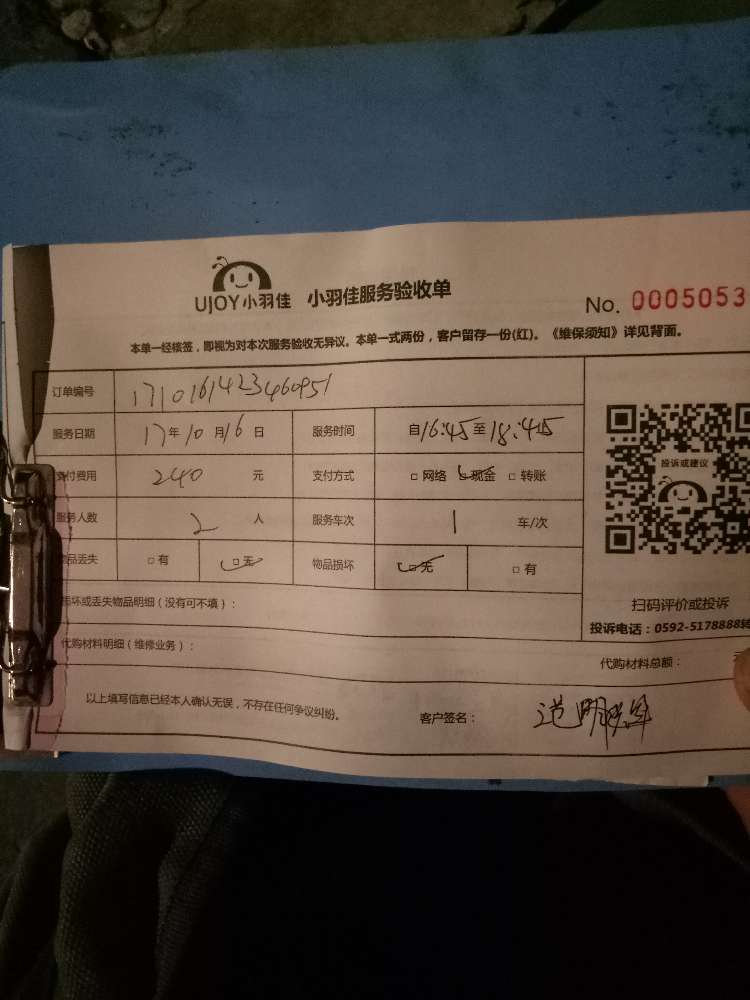 UJOY小羽佳 小羽佳服务验收单
No. 0005053
本单一经核签，即视为对本次服务验收无异议。本单一式两份，客户留存一份(红)。《维保须知》详见背面。
订单编号 1710161423460951
服务日期 17年10月16日 服务时间 自16:45至18:45
支付费用 240 元 支付方式 □网络 □现金 □转账
服务人数 2 人 服务车次 1 车/次
物品丢失 □有 □无 物品损坏 □无 □有
投诉或建议
扫码评价或投诉
投诉电话：0592-5178888转
损坏或丢失物品明细（没有可不填）：
代购材料明细（维修业务）：
代购材料总额：
以上填写信息已经本人确认无误，不存在任何争议纠纷。
客户签名：